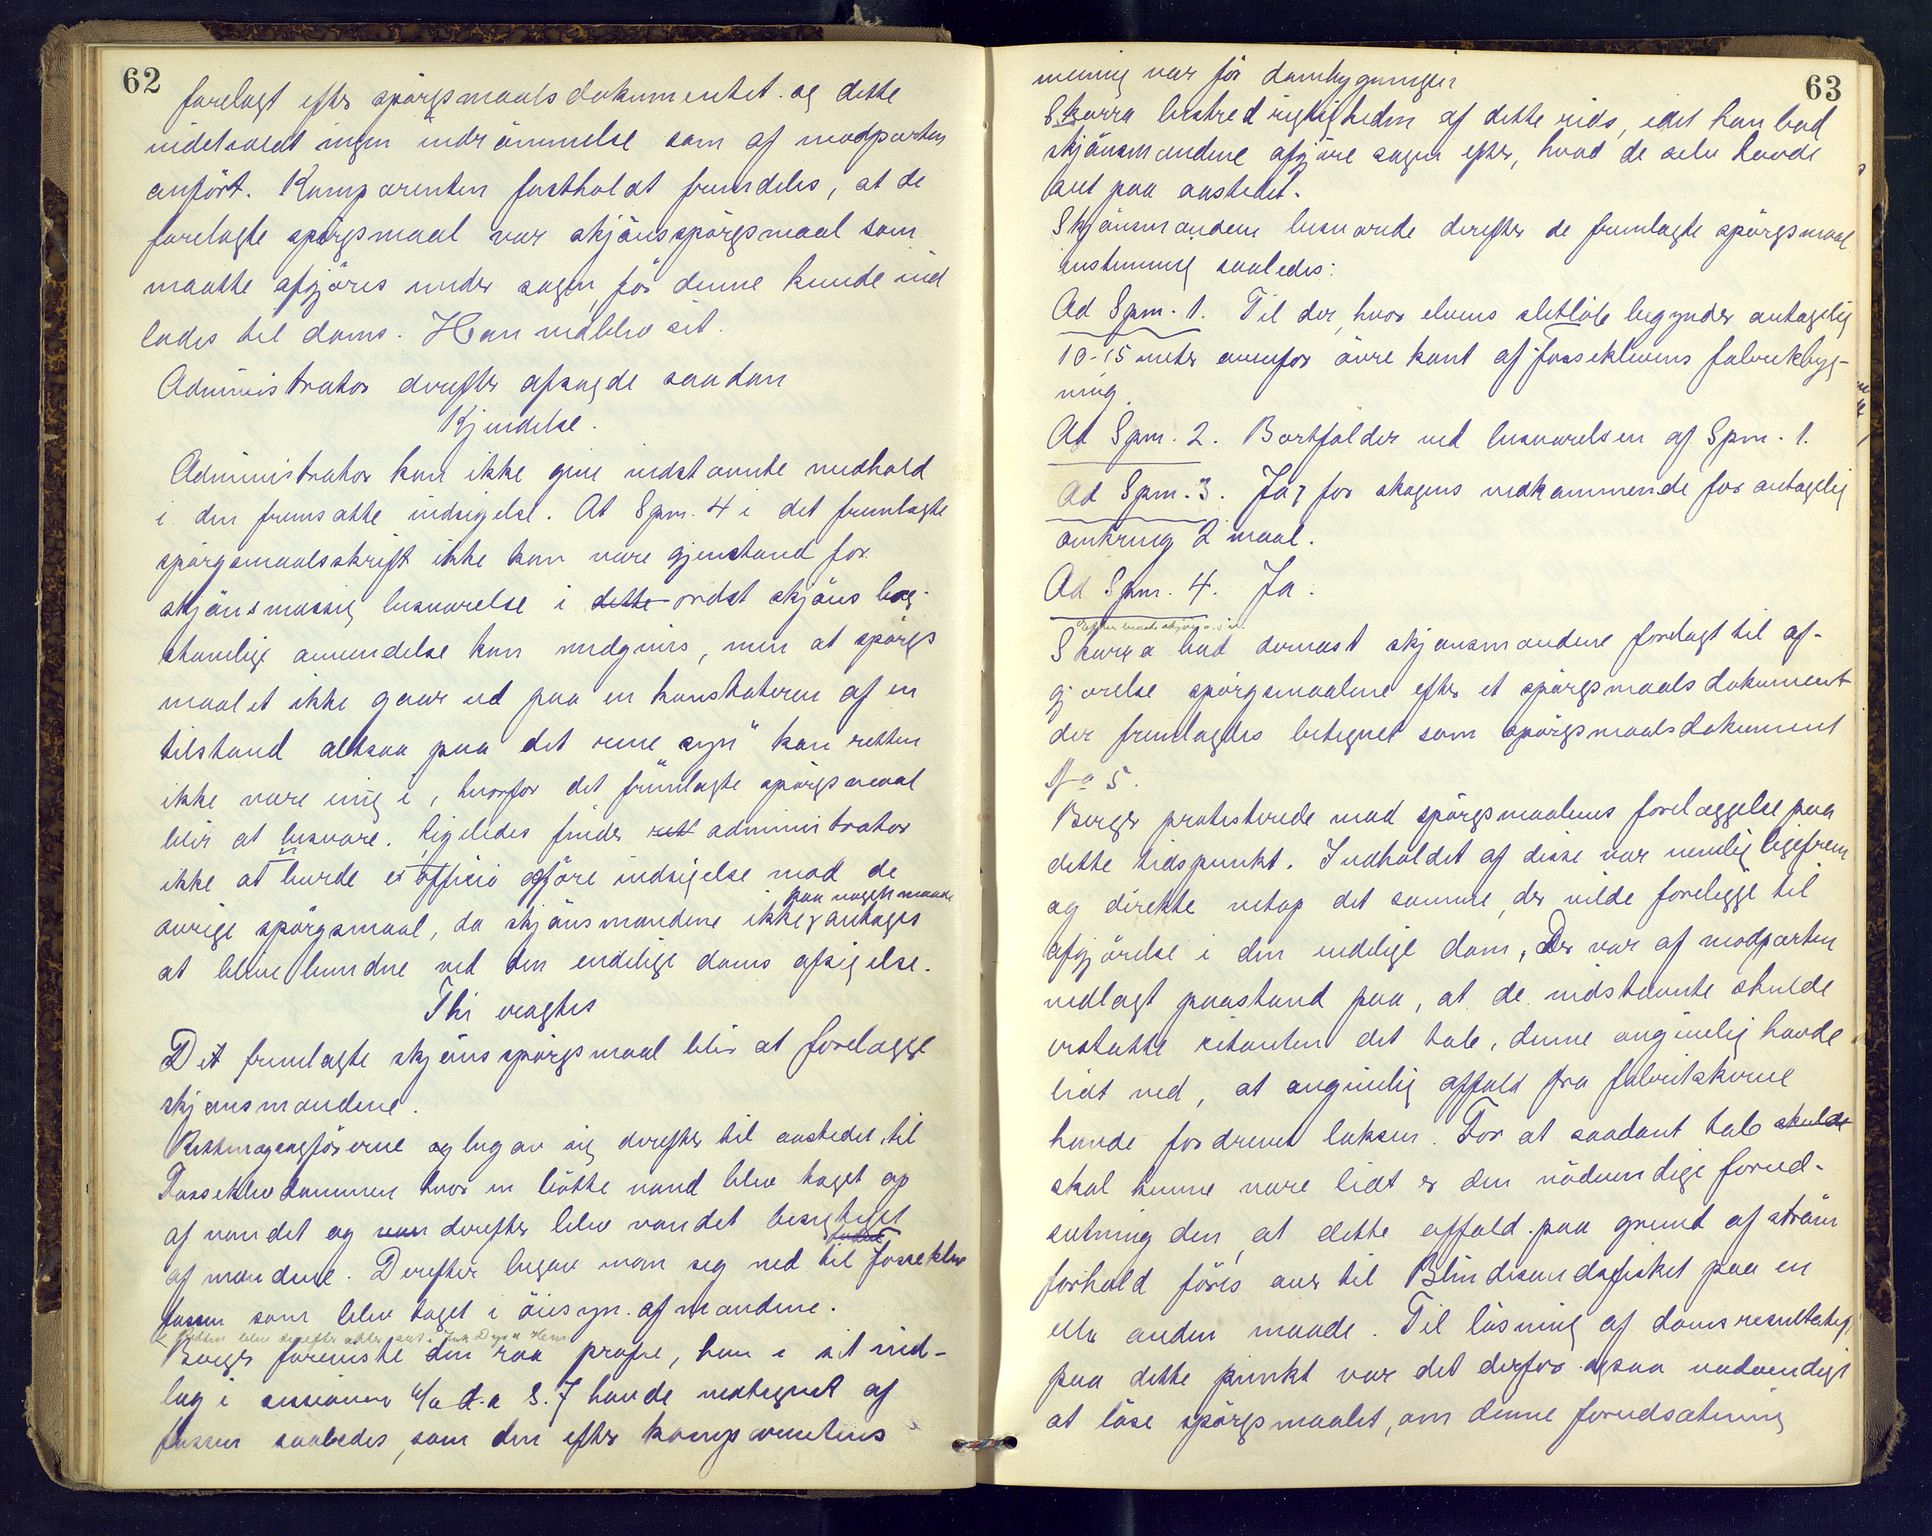 62
forelagt efter spörgsmaalsdokumentet og dette
indeholdt ingen indrömmelse som af modparten
anfört. Komparenten fastholdt fremdeles, at de
forelagte spörgsmaal var skjönsspörgsmaal som
maatte afgjöres under sagen, för denne kunde ind
lades til doms. Han vedblev sit.
Administrator derefter afsagde saadan
Kjendelse.
Administrator kan ikke give indstevnte medhold
i den fremsatte indsigelse. At Spm. 4 i det fremlagte
spörgsmaalsskrift ikke kan være gjenstand for
skjönsmæssig besvarelse i dette ordet skjöns bog-
stavelige anvendelse kan medgives, men at spörgs
maalet ikke gaar ud paa en konstateren af en
tilstand altsaa paa det rene "syn" kan retten
ikke være enig i, hvorfor det fremlagte spörgsmaal
blir at besvare. Ligeledes finder rett administrator
ikke at burde ex officio gjöre indsigelse mod de
paa nogen maade
övrige spörgsmaal, da skjönsmændene ikke antages
at blive bundne ved den endelige doms afsigelse.
Thi eragtes
Det fremlagte skjönsspörgsmaal blir at forelægge
skjönsmændene.
Retten og sagförerne og begav sig derefter til aastedet, til
Fosseklevdammen hvor en bötte vand blev taget op
af vandet og derefter blev vandet besigtiget
af mændene. Derefter begav man seg ned til Fosseklev
fossen som blev taget i öiesyn af mændene.
Retten blev derefter atter sat i
Borge foreviste den raa profil, han i sit ind-
læg i sessionen 4/6 d.a S. 7 havde vedtegnet af
fossen saaledes, som den efter komparentens
63
mening var för dambygningen
Skarra bestred rigtigheden af dette rids, idet han bad
skjönsmændene afgjöre sagen efter, hvad de selv havde
set paa aastedet.
Skjönsmændene besvarede derefter de fremlagte spörgsmaal
enstemmig saaledes:
Ad Spm. 1. Til der, hvor elvens sletlöb begynder antagelig
10-15 meter ovenfor övre kant af fosseklevens fabrikbyg-
ning.
Ad Spm. 2. Bortfalder ved besvarelsen af Spm. 1.
Ad Spm. 3. Ja, for skogens vedkommende for antagelig
omkring 2 maal.
Ad Spm. 4. Ja.
Skarra bad dernæst skjönsmændene forelagt til af-
gjörelse spörgsmaalene efter et spörgsmaalsdokument
der fremlagdes betegnet som spörgsmaalsdokument
No 5.
Borge protesterede mod spörgsmaalenes forelæggelse paa
dette tidspunkt. Indholdet af disse var nemlig ligefrem
og direkte netop det samme, der vilde foreligge til
afgjörelse i den endelige dom, Der var af modparten
nedlagt paastand paa, at de indstevnte skulde
erstatte citanten det tab, denne angivelig havde
lidt ved, at angivelig affald fra fabrikskerne
havde fordrevet laksen. For at saadant tab skulde
skal kunne være lidt er den nödvendige forud-
sætning den, at dette affald paa grund af ström
forhold föres over til Blindesundsfisket paa en
eller anden maade. Til lösning af domsresultatet
paa dette punkt var det derfor ogsaa nödvendigt
at löse spörgsmaalet, om denne forudsætning